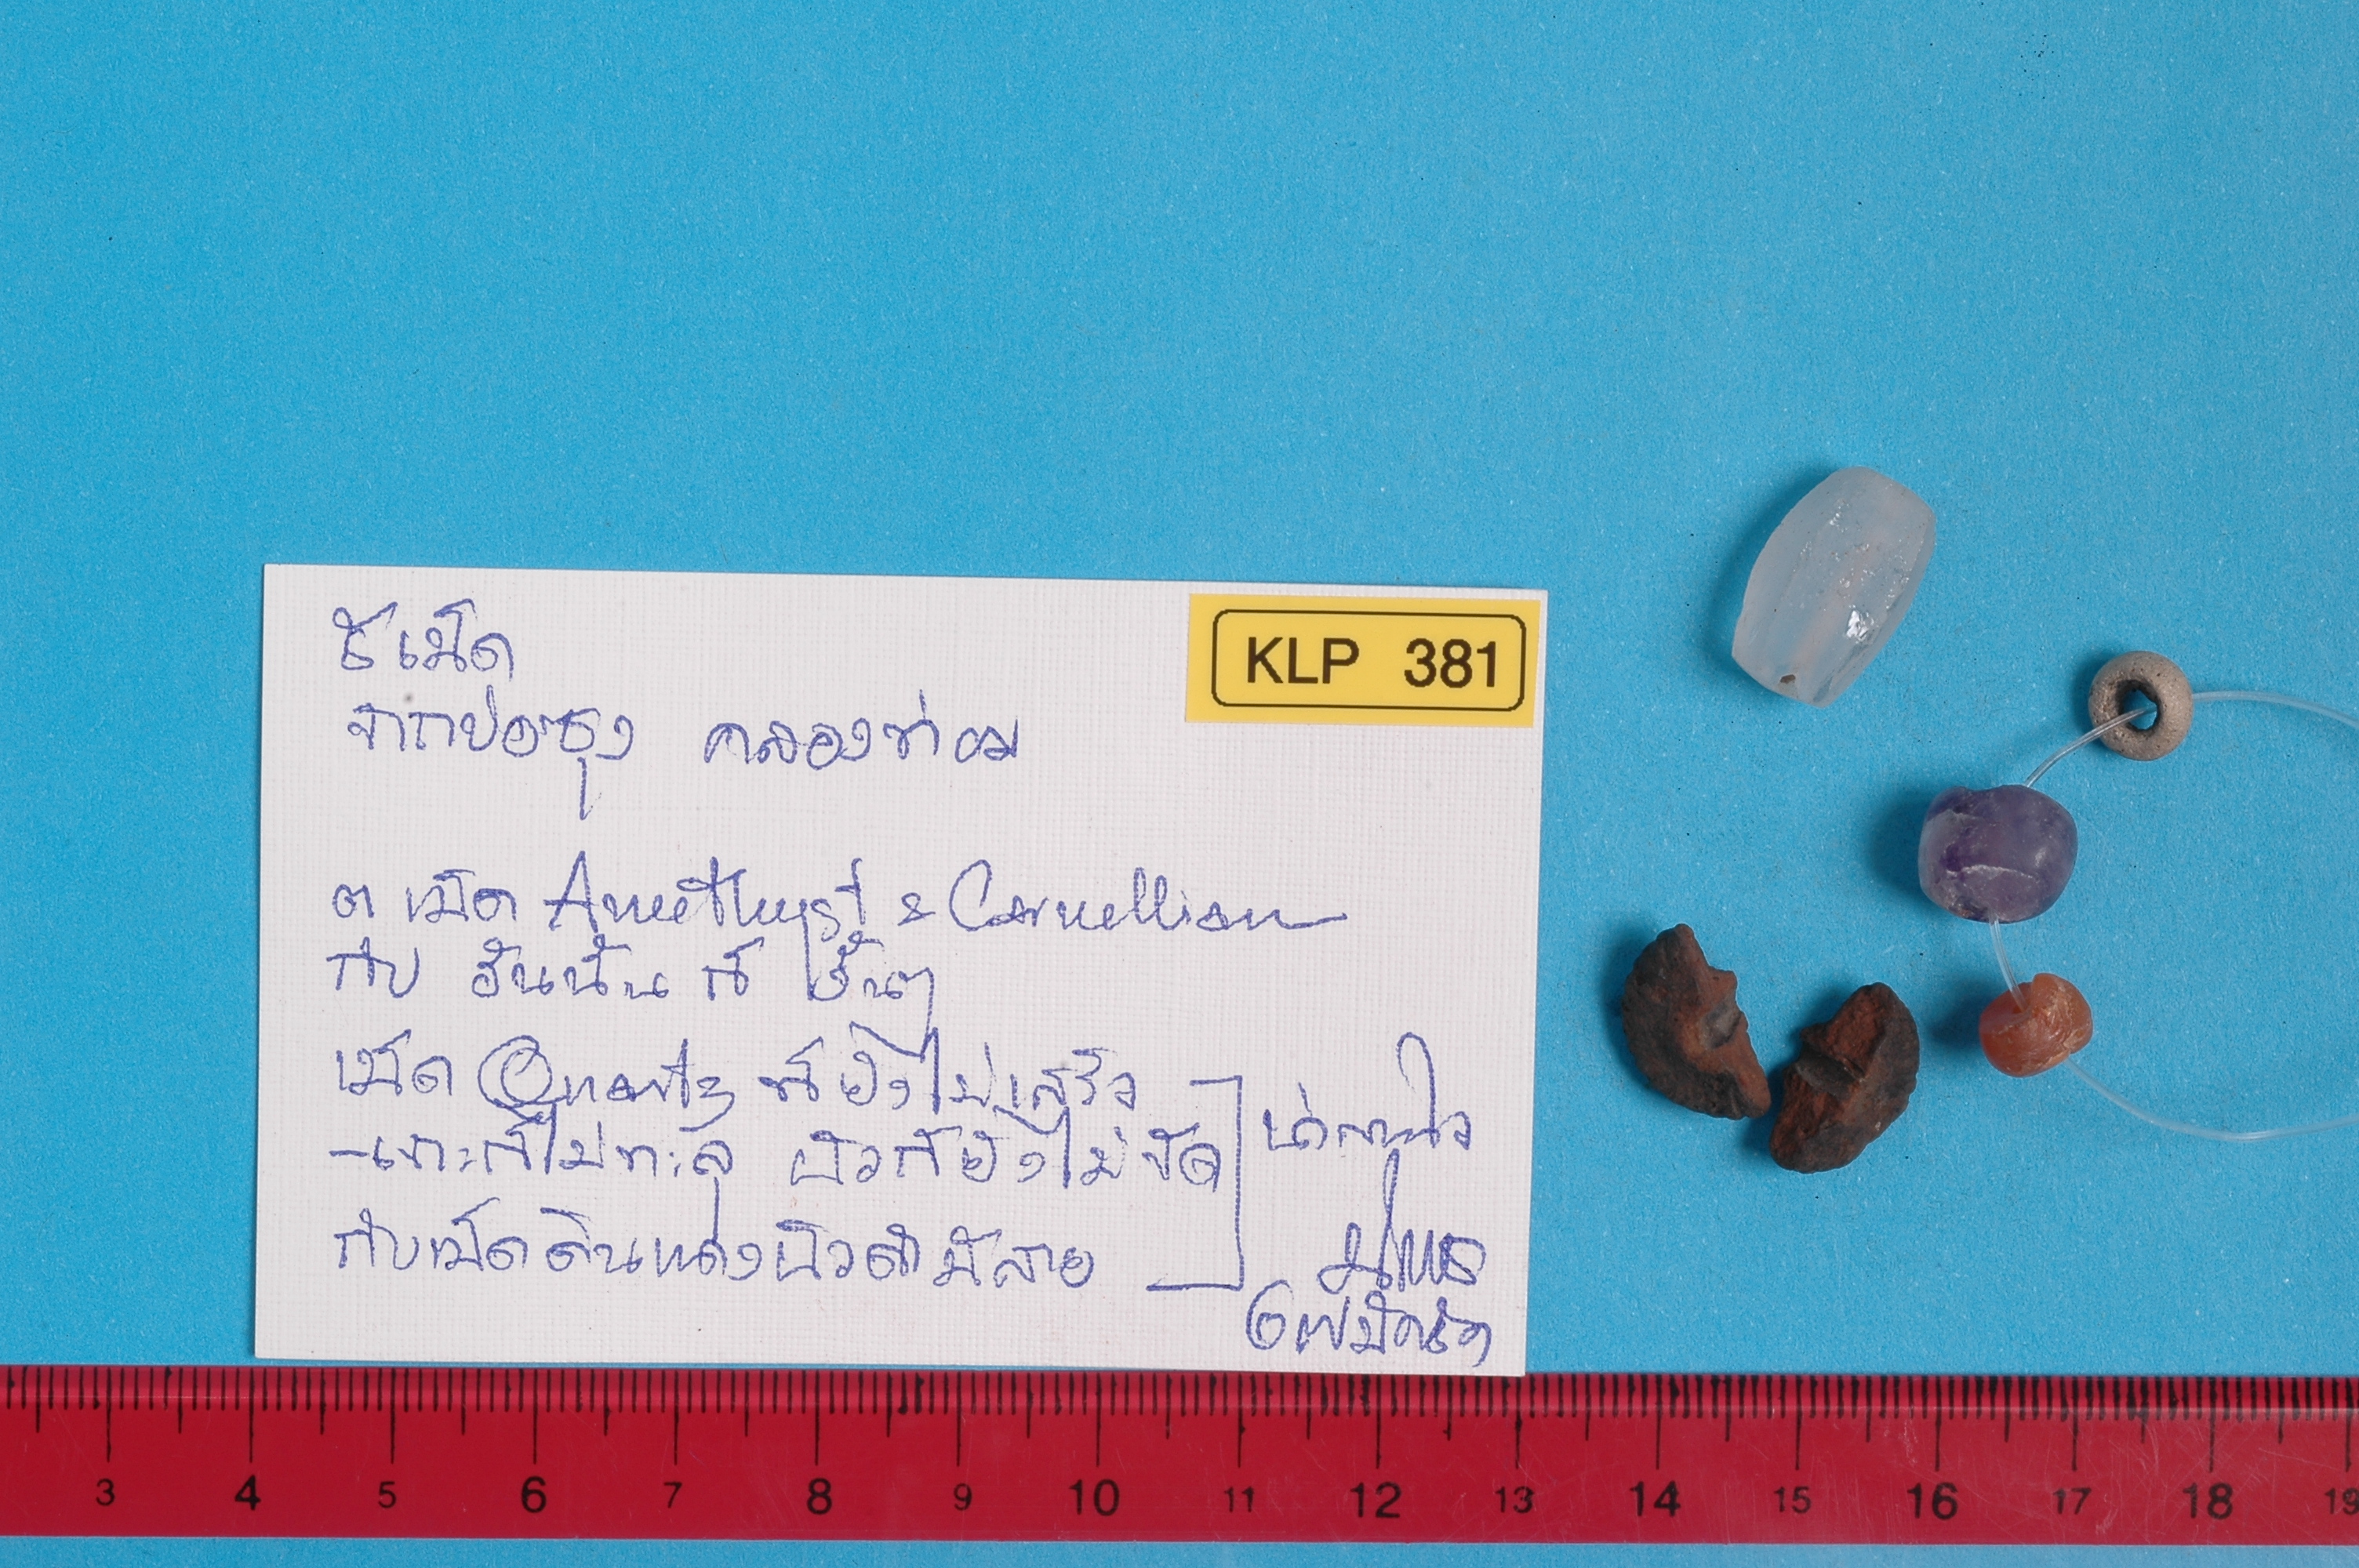 ๕ เม็ด
KLP 381
จากบ่อธุง คลองท่อม
๓ เม็ด Amethyst & Carnellian
กับ อันนั้น ก็ งั้นๆ
เม็ด Quartz ที่ยังไม่เสร็จ
-เจาะก็ไม่ทะลุ ผิวก็ยังไม่ขัด
กับเม็ดดินแดงผิวดำมีลาย
น่าสนใจ
3 4 5 6 7 8 9 10 11 12 13 14 15 16 17 18 19